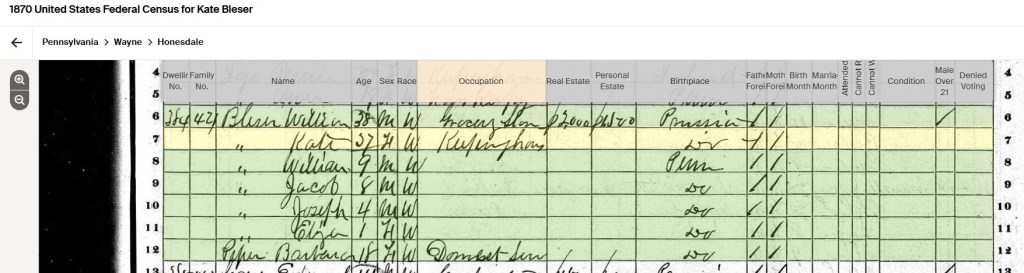 1870 United States Federal Census for Kate Bleser
Pennsylvania > Wayne > Honesdale
Dwelling No. Family No. Name Age Sex Race Occupation Real Estate Personal Estate Birthplace Fath Forei Moth Forei Birth Month Marria Month Attended Cannot R Cannot W Condition Male Over 21 Denied Voting
4 4
5 5
6 384 421 Bleser William 38 M W Grocery Store $2000 $1500 Prussia / / ✓ 6
7 " Kate 37 F W Keeping house Do / / 7
8 " William 9 M W Penn / / 8
9 " Jacob 8 M W Do / / 9
10 " Joseph 4 M W Do / / 10
11 " Eliza 1 F W Do / / 11
12 Piper Barbara 18 F W Domest Serv Do / / 12
13 13